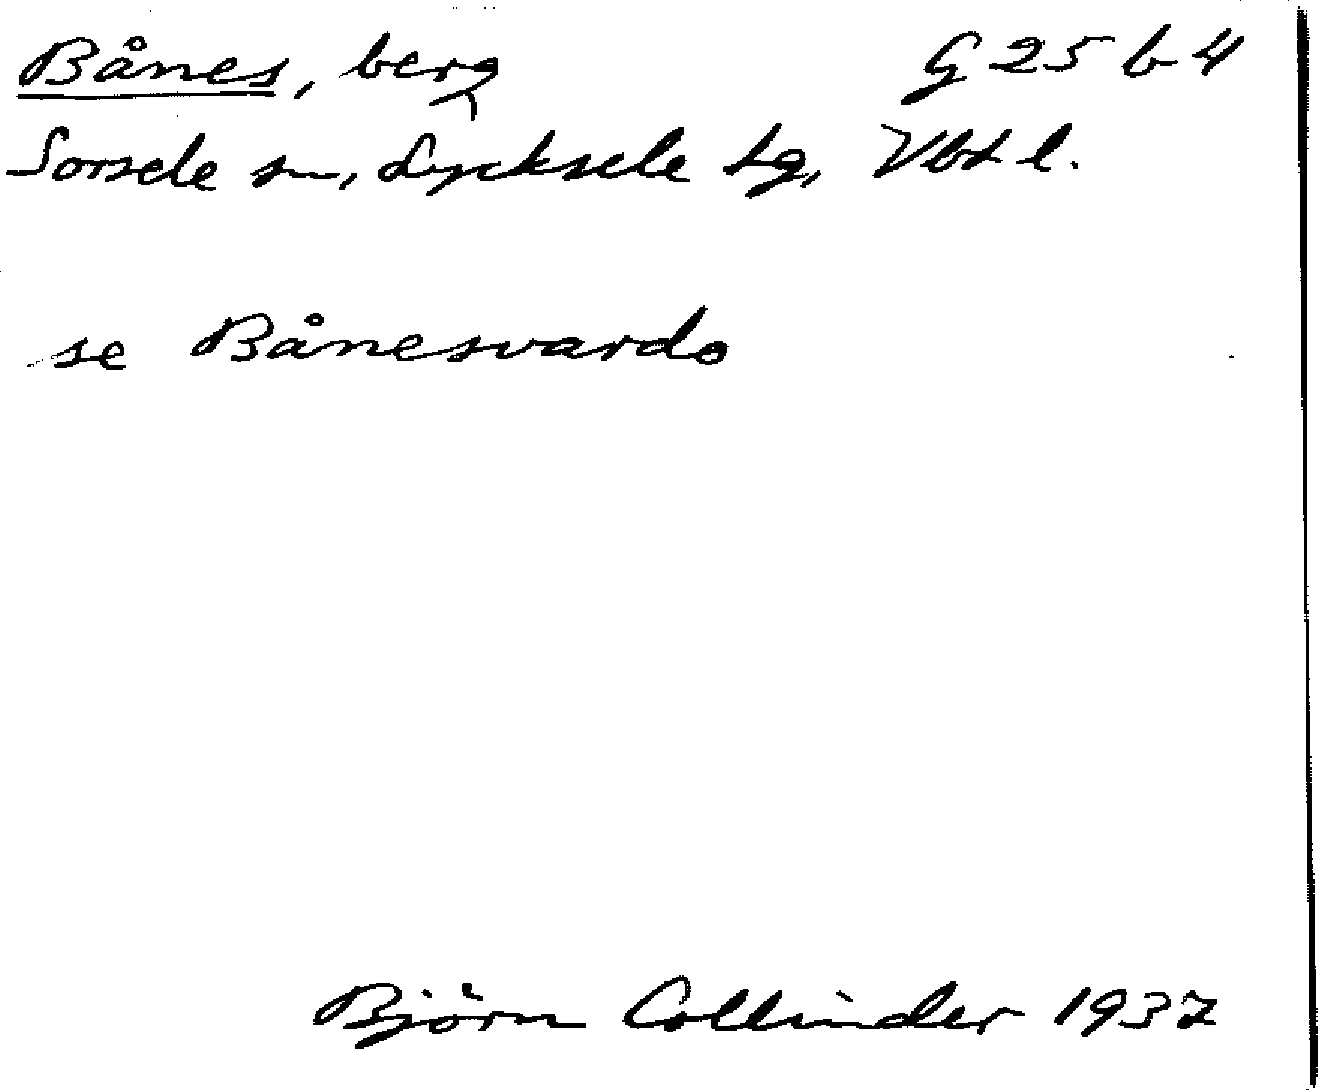 Bånes, berg G 25 b 4
Sorsele sn, Lycksele tg, Vbtl.
se Bånesvardo
Björn Collinder 1937